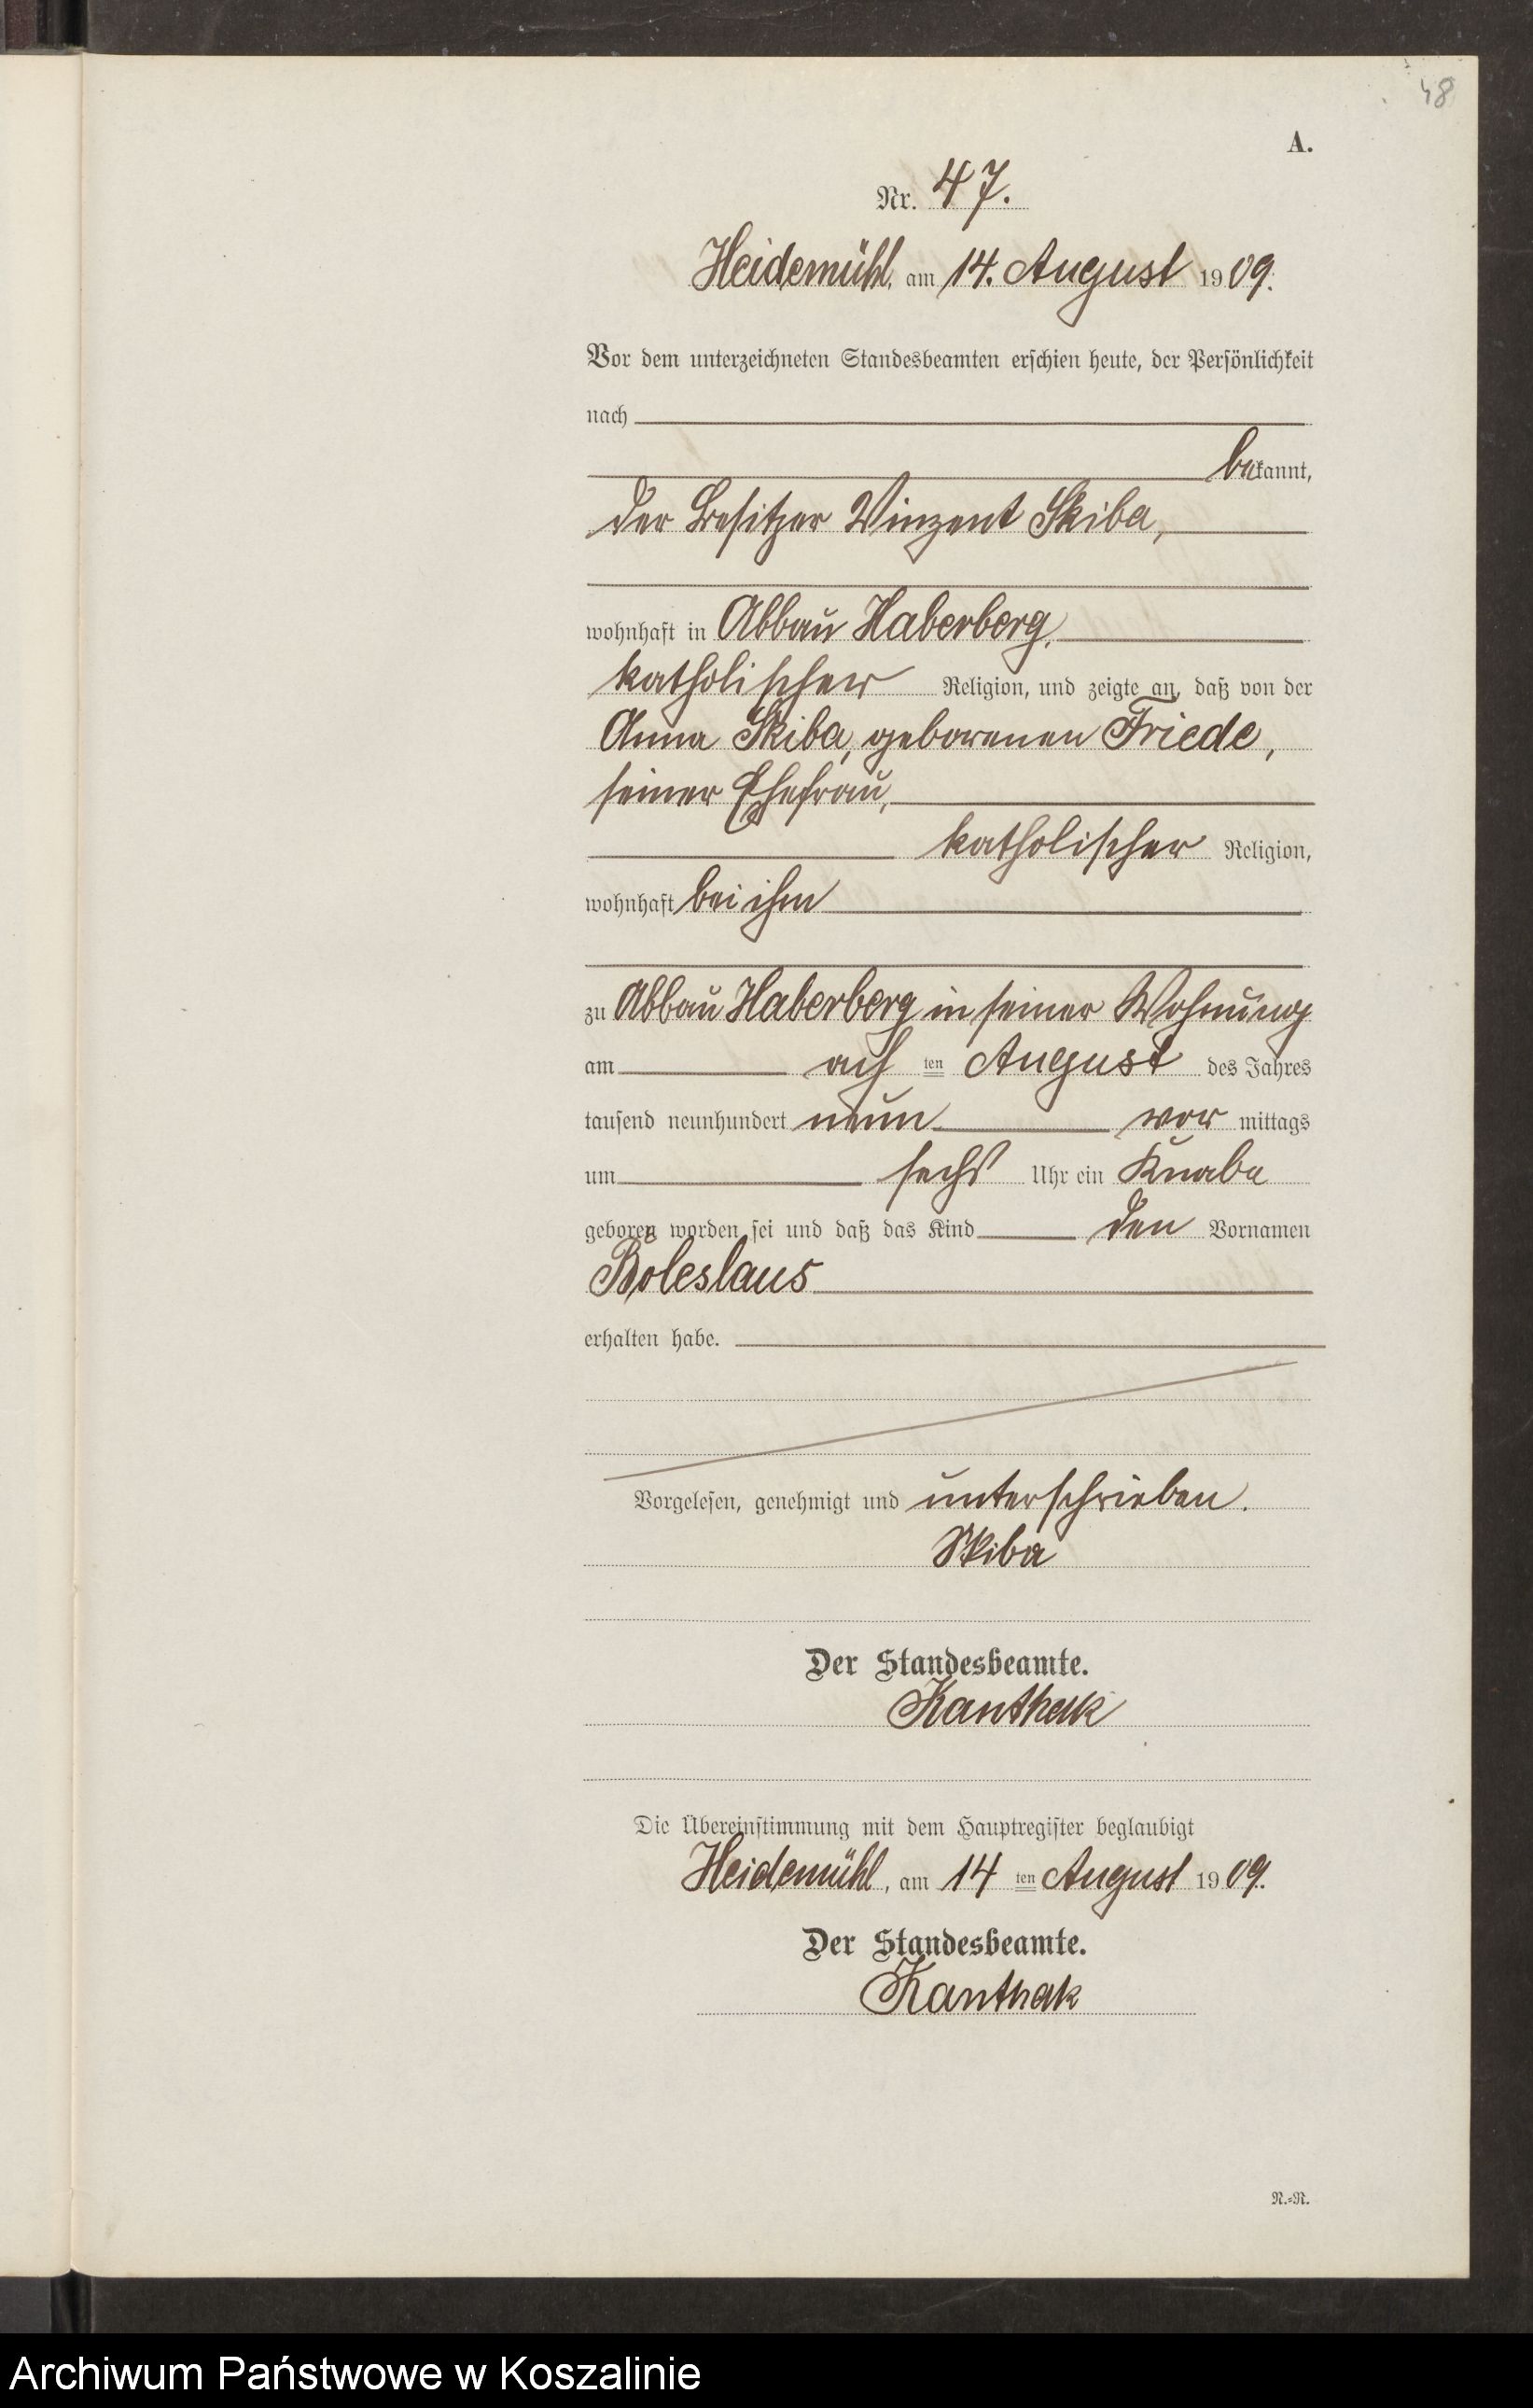 48
A.
Nr. 47.
Heidemühl, am 14. August 1909.
Vor dem unterzeichneten Standesbeamten erschien heute, der Persönlichkeit
nach
bekannt,
der Besitzer Vinzent Skiba,
wohnhaft in Abbau Haberberg,
katholischer Religion, und zeigte an, daß von der
Anna Skiba, geborenen Friede,
seiner Ehefrau,
katholischer Religion,
wohnhaft bei ihm
zu Abbau Haberberg in seiner Wohnung
am ach ten August des Jahres
tausend neunhundert neun vor mittags
um sechs Uhr ein Knabe
geboren worden sei und daß das Kind den Vornamen
Boleslaus
erhalten habe.
Vorgelesen, genehmigt und unterschrieben.
Skiba
Der Standesbeamte.
Kanthak
Die Übereinstimmung mit dem Hauptregister beglaubigt
Heidemühl, am 14 ten August 1909.
Der Standesbeamte.
Kanthak
N.=N.
Archiwum Państwowe w Koszalinie